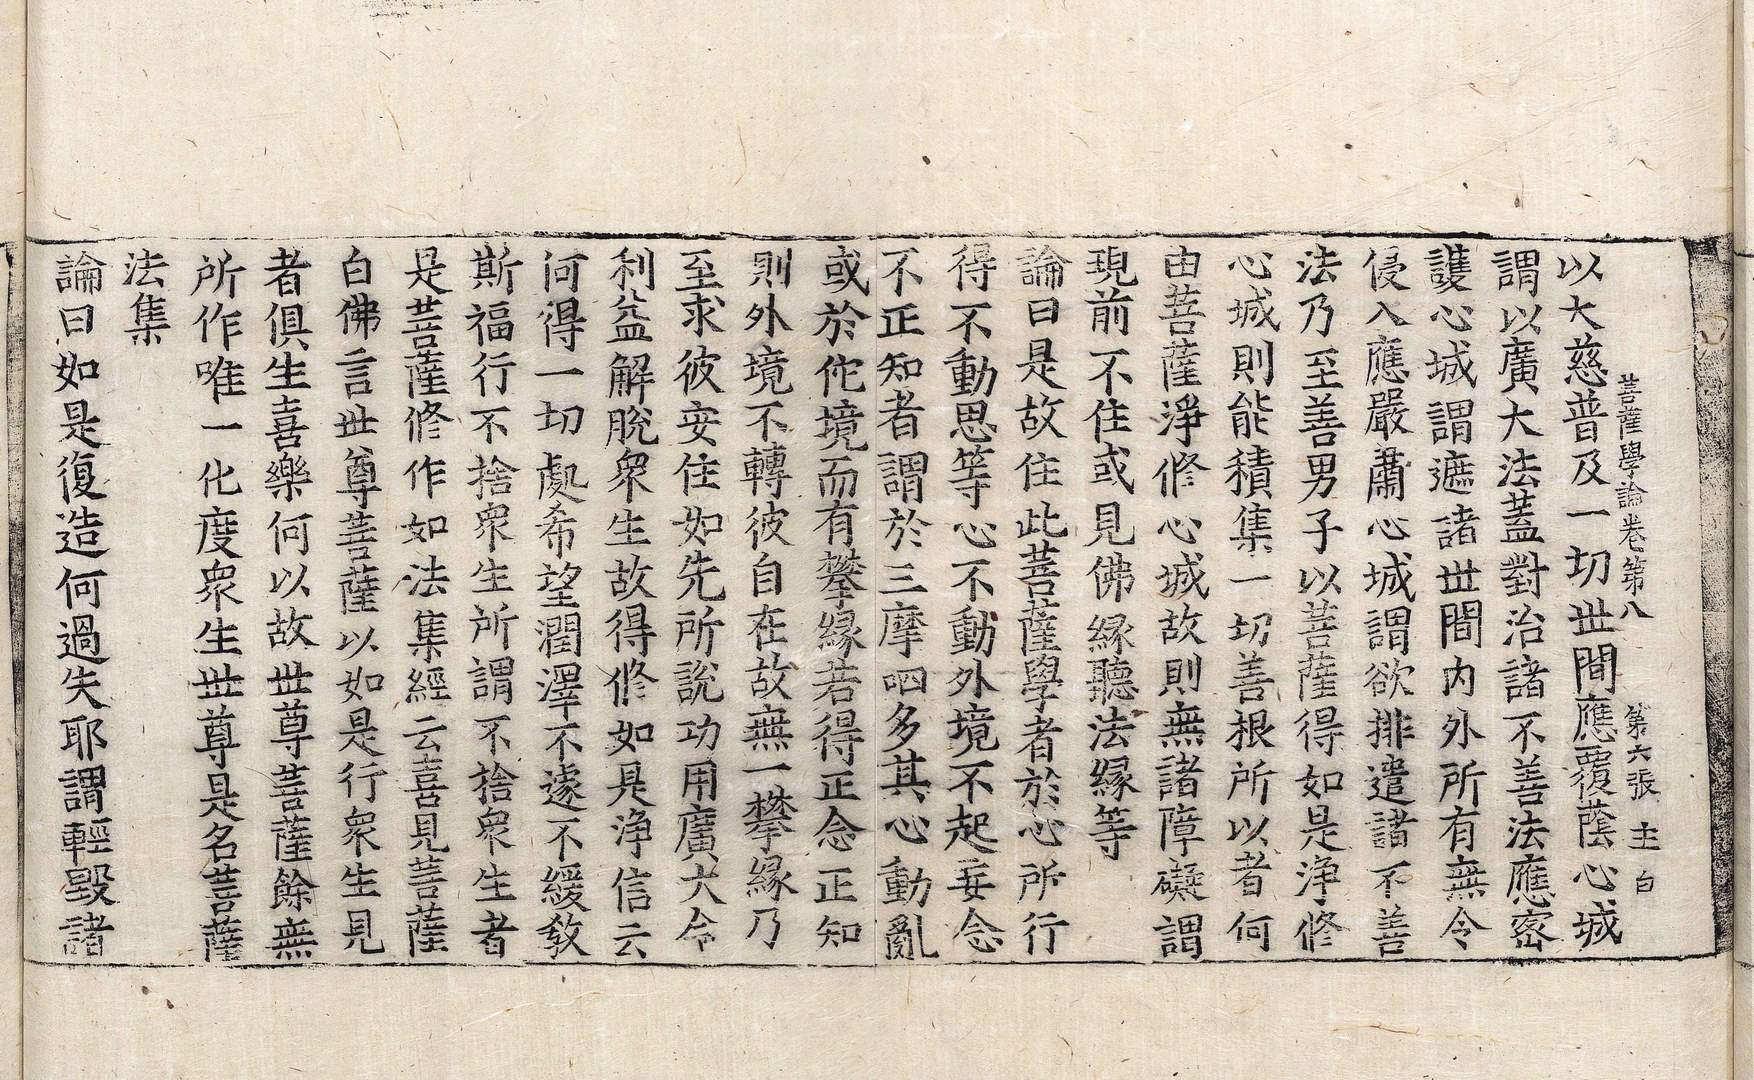 菩薩學論卷第八 第六張 主 白
以大慈普及一切世間應覆蔭心城
謂以廣大法蓋對治諸不善法應密
護心城謂遮諸世間內外所有無令
侵入應嚴肅心城謂欲排遣諸不善
法乃至善男子以菩薩得如是淨修
心城則能積集一切善根所以者何
由菩薩淨修心城故則無諸障礙謂
現前不住或見佛緣聽法緣等
論曰是故住此菩薩學者於心所行
得不動思等心不動外境不起妄念
不正知者謂於三摩呬多其心動亂
或於佗境而有攀緣若得正念正知
則外境不轉彼自在故無一攀緣乃
至求彼安住如先所說功用廣大令
利益解脫衆生故得修如是淨信云
何得一切處希望潤澤不遽不緩教
斯福行不捨衆生所謂不捨衆生者
是菩薩修作如法集經云喜見菩薩
白佛言世尊菩薩以如是行衆生見
者俱生喜樂何以故世尊菩薩餘無
所作唯一化度衆生世尊是名菩薩
法集
論曰如是復造何過失耶謂輕毀諸